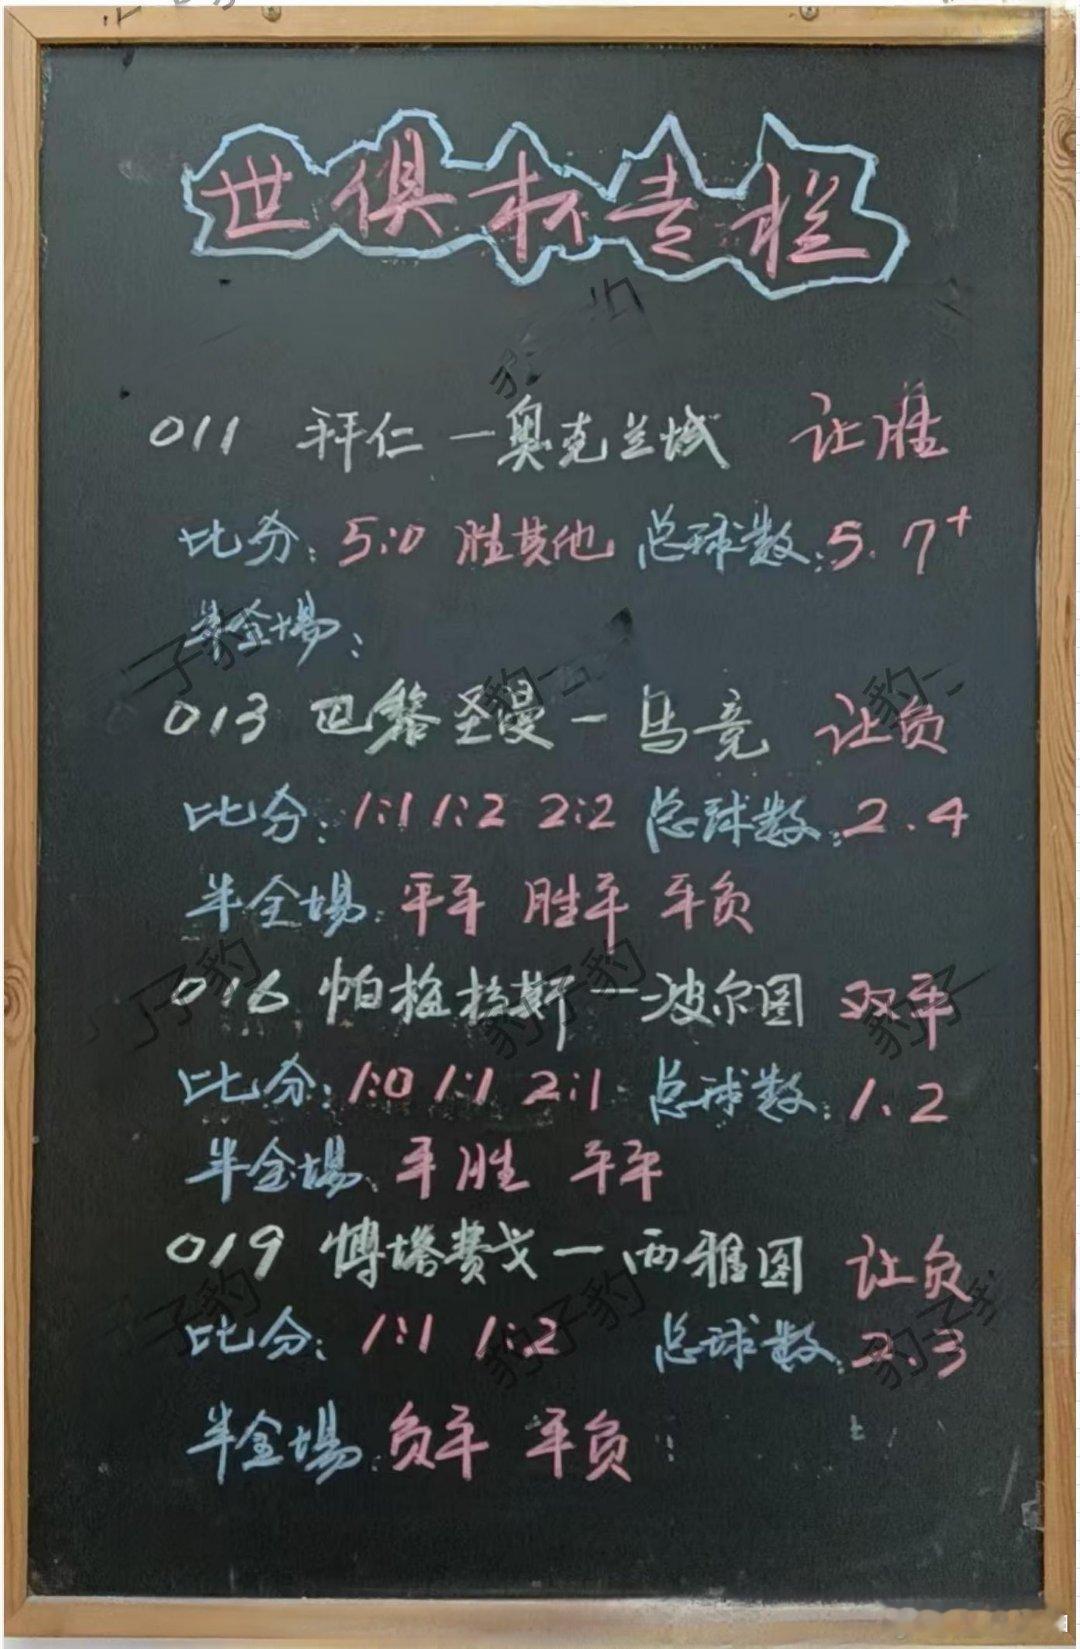 世俱杯专栏
011 拜仁—奥克兰城 让胜
比分：5:0 胜其他 总球数：5. 7+
半全場：
013 巴黎圣曼—马竞 让负
比分：1:1 1:2 2:2 总球数：2.4
半全場：平平 胜平 平负
016 帕梅拉斯—波尔图 双平
比分：1:0 1:1 2:1 总球数：1.2
半全場：平胜 平平
019 博塔费戈—西雅图 让负
比分：1:1 1:2 总球数：2.3
半全場：负平 平负